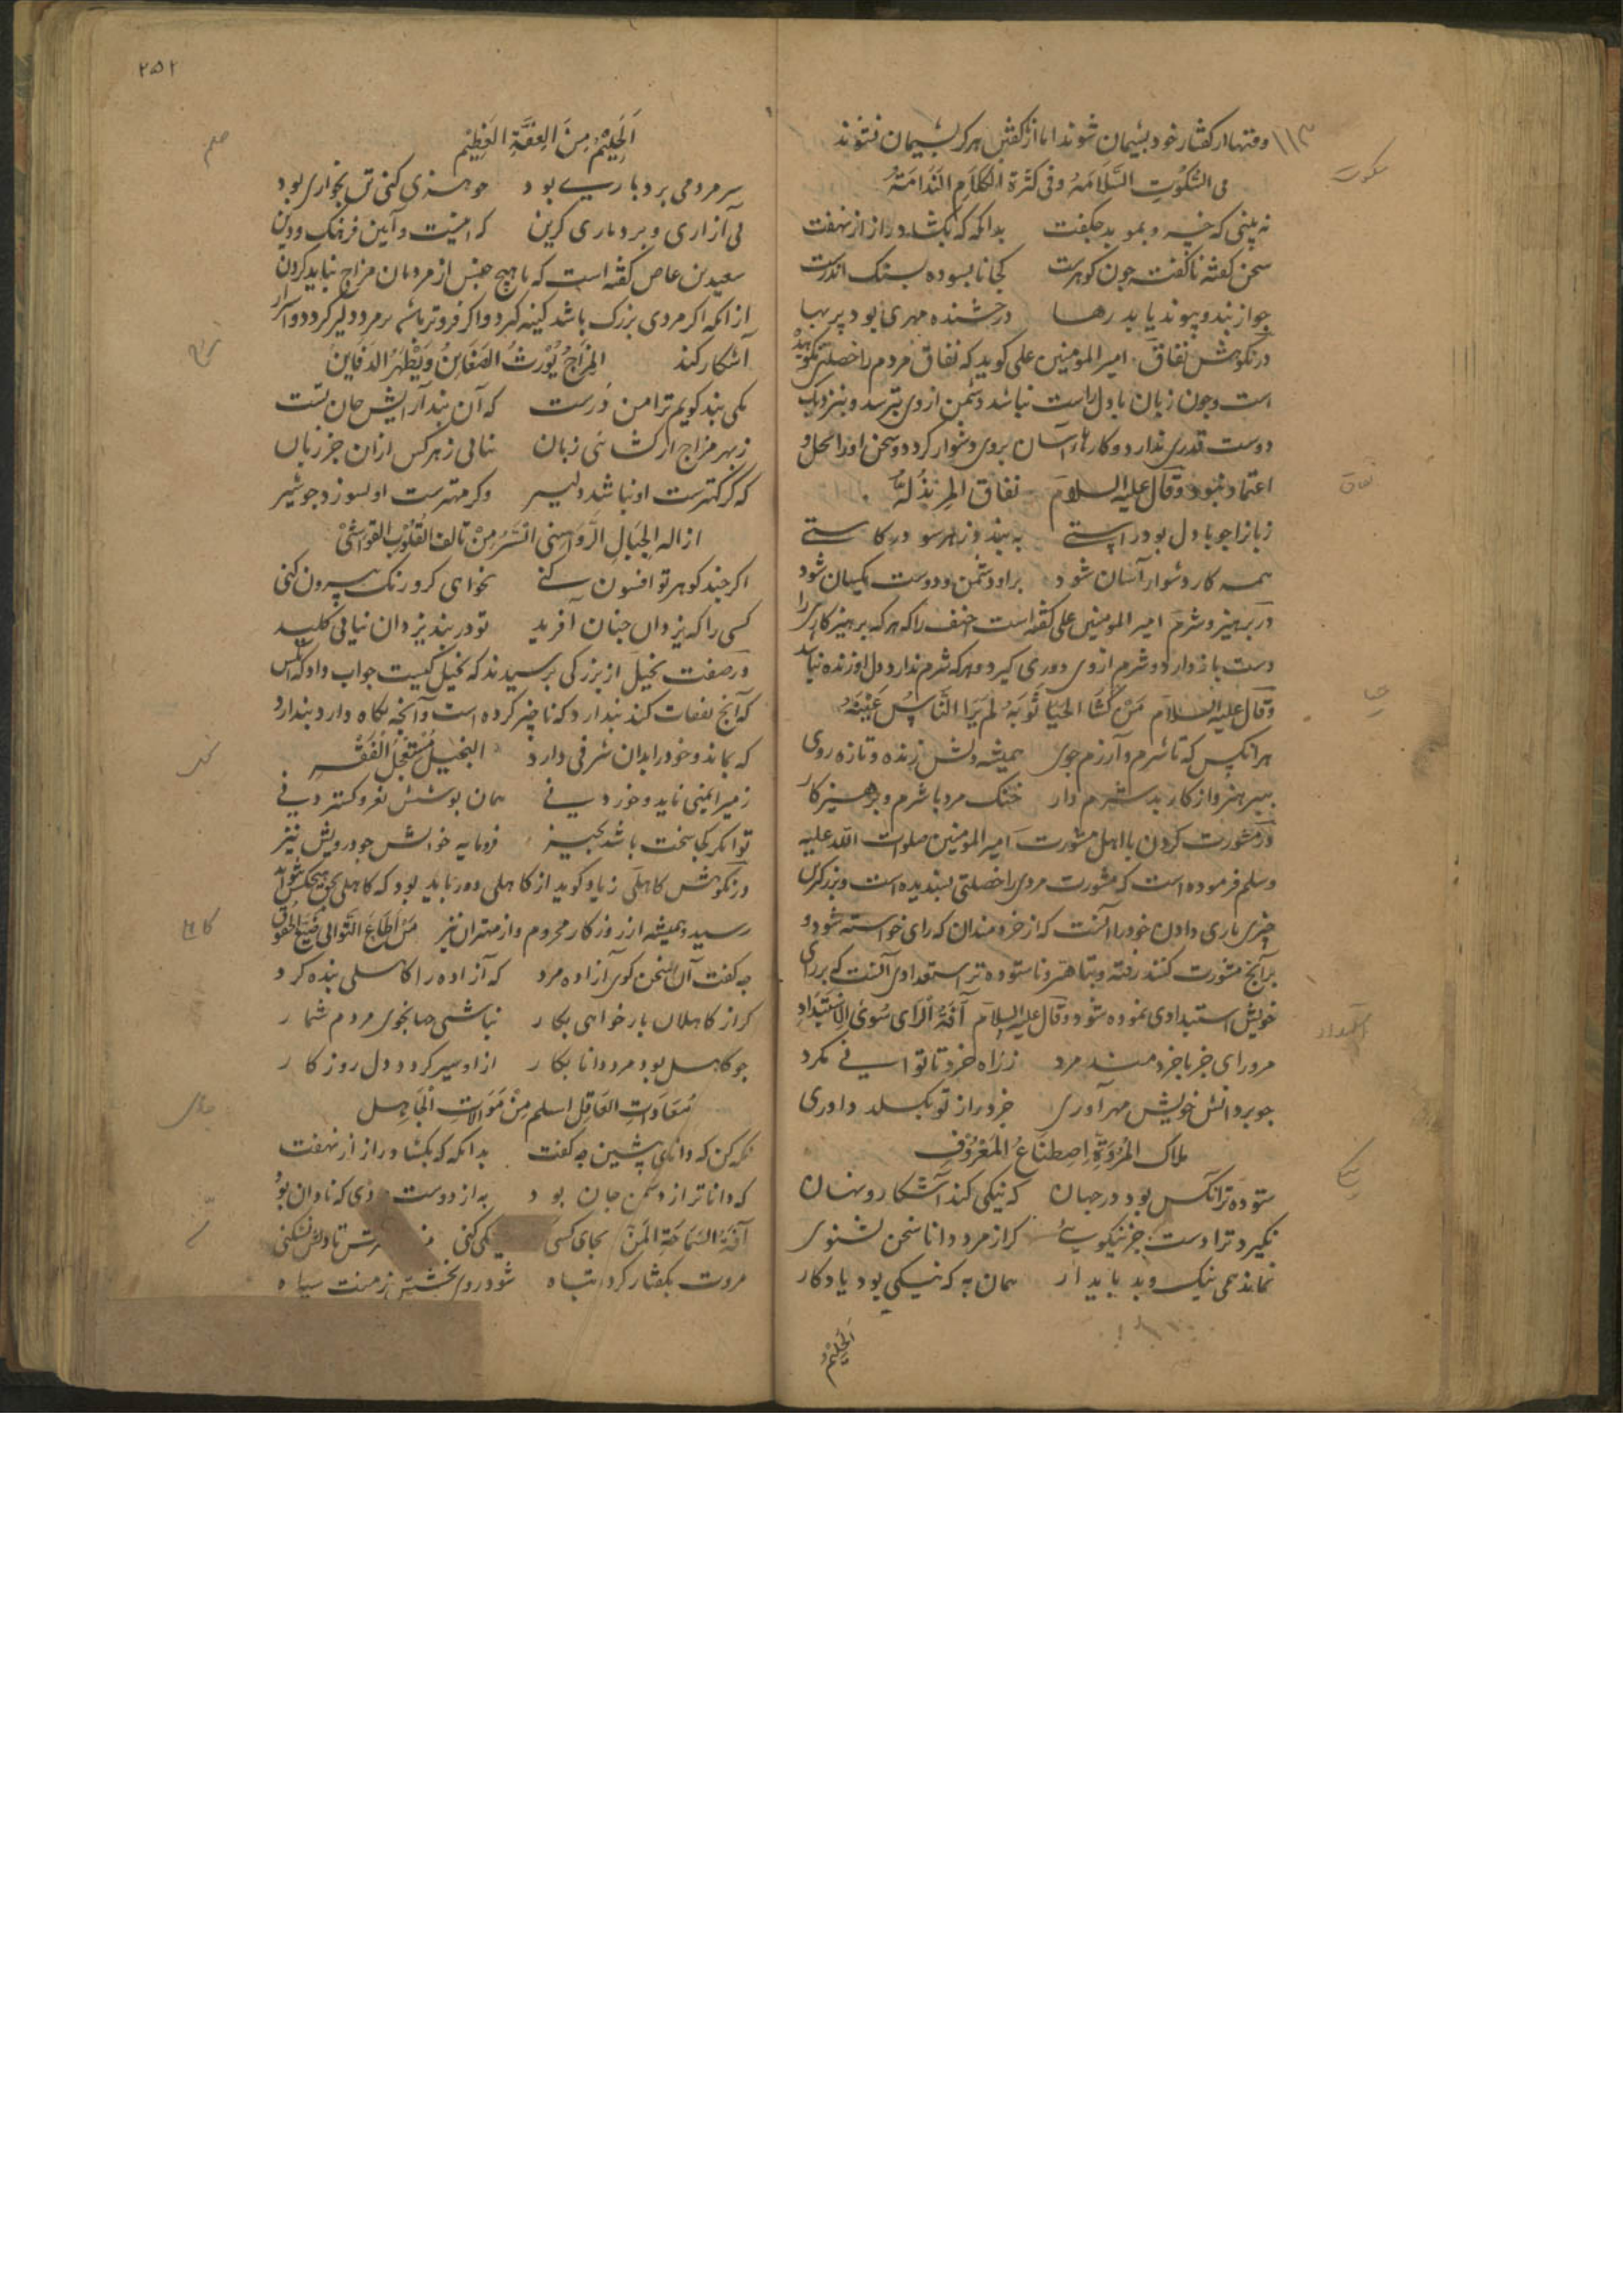 وقتها از کفتار خود بشیمان شوند اما از نکفتن هرکز بشیمان نشوند
فی السُّکُوتِ السَّلَامَهُ وَفی کَثرَة الکَلَامِ النَدَامَتهُ
نه بینی که خسرو بموبد جکفت بدانکه که بکشاد راز از نهفت
سخن کفته ناکفته جون کوهرست کجا نابسوده بسنک اندرست
جو از بند و پیوند یابد رها درخشنده مهری بود پر بها
در نکوهش نفاق امیر المومنین علی کوید که نفاق مردم را خصلتی نکوهیده
است و جون زبان با دل راست نباشد دشمن از وی نترسد و بنزدیک
دوست قدری ندارد و کارهاء آسان بروی دشوار کردد و سخن او را محل و
اعتماد نبود وقال علیه السلام نفاق المرِ بذُلهُ
زبانرا جو با دل بود راستی به بندد ز هر سو در کاستی
همه کار دشوار آسان شود برو دشمن و دوست یکسان شود
در پرهیز و شرم امیر المومنین علی کفته است احنف را که هر که پرهیزکاری را
دست باز دارد و شرم از وی دوری کیرد و هر که شرم ندارد دل او زنده نباشد
وقال علیه السلام مَن کَسَا الحَیَا ثَوبَهُ لَم یَرَا النَّاسُ عَیبَهُ
هر انکس که با شرم و آزرم جوی همیشه دلش زنده و تازه روی
ببرهیز و از کار بد شرم دار خنک مرد با شرم و پرهیز کار
در مشورت کردن با اهل مشورت امیر المومنین صلوات الله علیه
وسلم فرموده است که مشورت مردم را خصلتی بسندیده است و بزرکترین
چیزی یاری دادن خود را آنست که از خردمندان که رای خواسته شود و
بر آنج مشورت کنند رفته و ناستوده تر استبدادی آنست که بر رای
خویش استبدادی نموده شود وقال علیه السلام آفَةُ الرَای سُوی الاستِبدَادِ
مرو رای جز با خردمند مرد ز راه خرد تا توانی مکرد
جو بر دانش خویش مهر آوری خرد را ز تو بکسلد داوری
ملاک المُرُوَّةِ اِصطِنَاعُ المَعرُوفِ
ستوده تر آنکس بود در جهان که نیکی کند آشکار و نهان
نکیرد ترا دست جز نیکویی کر از مرد دانا سخن بشنوی
نماند همی نیک و بد پایدار همان به که نیکی بود یادکار
اَلحِلِیمُ
۱۱۳
سکوت
نفاق
استبداد
نیکی
۲۵۲
اَلحِلِیمُ مِنَ العِفَّةِ العَظِیم
سر مردمی بردباری بود جو تندی کنی تن بخواری بود
بی آزاری و بردباری کزین که اینست آیین فرهنک و دین
سعید بن عاص کفته است که با هیچ جنس از مردمان مزاح نباید کردن
از انکه اکر مردی بزرک باشد کینه کیرد و اکر فروتر باشد بر مرد دلیر کردد و اسرار
آشکار کند المِزَاحُ یُورِثُ الضَغَاینُ وَیُظهِرُ الدَفَاینَ
یکی بند کویم ترا من درست که آن بند آرایش جان تست
ز بهر مزاح ار کشائی زبان نیابی ز هر کس ازان جز زیان
که کر کهترست او نباشد دلیر وکر مهترست او بسوزد جو شیر
ازاله الجبَالِ الرَّوَاسِی ایسَرُ مِن تالف القُلُوبِ القَواسِی
اکر جند کوهر تو افسون کنی نخواهی کزو رنک بیرون کنی
کسی را که یزدان جنان آفرید تو در بند یزدان نیابی کلید
در صفت بخیل از بزرکی برسیدند که بخیل کیست جواب داد کسی
که آنج نفقات کند بندارد که ناچیز کرده است و آنچه نکاه دارد بندارد
که بماند و خود را بدان شرفی دارد البَخیلُ مُستَعجِلُ الفَقرِ
توانکر کجا سخت باشد بچیز فرومایه خوانش جو درویش نیز
در نکوهش کاهلی زیاد کوید از کاهلی دور باید بود که کاهلی بحق هیجکس نتواند
رسید و همیشه از روزکار محروم و از مهتران نیز مَن اَطَاعَ التَّوانی ضَیَّعَ الحُقوُق
جه کفت آن سخن کوی آزاده مرد که آزاده را کاهلی بنده کرد
کر از کاهلان یار خواهی بکار نباشی جهانجوی مردم شمار
جو کاهل بود مرد دانا بکار ازو سیر کردد دل روزکار
مُعَادَاتِ العَاقِل اسلم مِن مَوَالاتِ الجَاهِل
نکه کن که دانای پیشین جه کفت بدانکه که بکشاد راز از نهفت
که دانا ترا دشمن جان بود به از دوست مردی که نادان بود
آفَةُ السَّمَاحَةِ المَنّ بجای کسی نیکی کنی
مروت بکفتار کردد تباه شود روی بخشش ز منت سیاه
حلم
مزاح
بخل
کاهلی